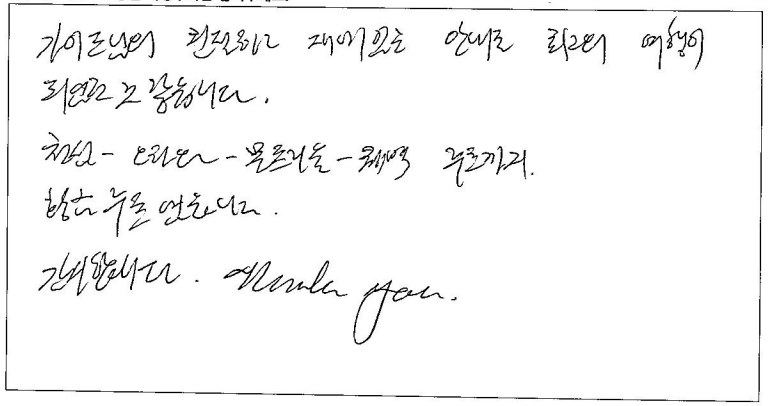 가이드님의 친절하고 재미있는 안내로 최고의 여행이
되었던 것 같습니다.
오타와 - 몬트리올 - 퀘벡 투어까지.
감사합니다. Thank you.